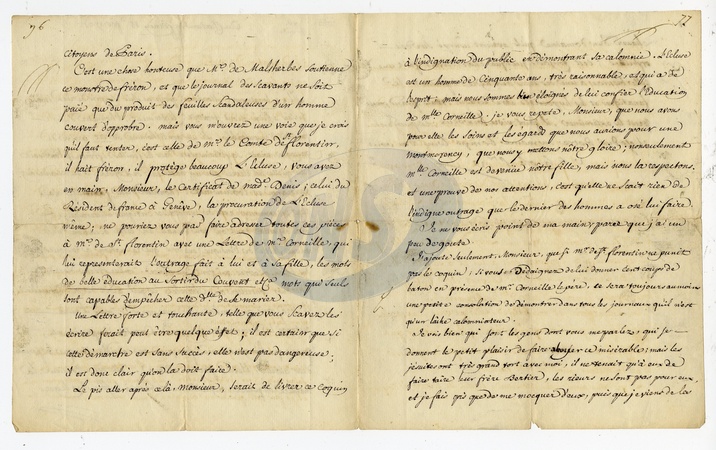 76
citoyens de Paris.
C'est une chose honteuse que Mr. de Malsherbes soutienne
ce monstre de fréron, et que le journal des scavants ne soit
paié que du produit des feuilles scandaleuses d'un homme
couvert d'opprobre. mais vous m'ouvrez une voie que je crois
qu'il faut tenter, c'est celle de mr. le Comte de st. florentin,
il hait fréron, il protège beaucoup L'Ecluse, vous avez
en main, Monsieur, le Certificat de mad.e Denis; celui du
Résident de france à Genève, la procuration de L'Ecluse
même; ne pouriez vous pas faire adresser toutes ces pièces
à Mr. de St. florentin avec une Lettre de mr. Corneille, qui
lui représenterait l'outrage fait à lui et à sa fille, les mots
de belle éducation au sortir du Couvent et mots qui seuls
sont capables d'empêcher cette dlle. de se marier.
Une Lettre forte et touchante, telle que vous scavez les
écrire ferait peut être quelque éfet; il est certain que si
cette démarche est sans succès elle n'est pas dangereuse;
il est donc clair qu'on la doit faire.
Le pis aller après cela, Monsieur, serait de livrer ce coquin
77
à l'indignation du public en démontrant sa calomnie. L'Ecluse
est un homme de Cinquante ans, très raisonnable, et qui a de
l'esprit; mais nous sommes bien éloignés de lui confier l'éducation
de mlle. Corneille. je vous repète, Monsieur, que nous avons
pour elle les soins et les égards que nous aurions pour une
montmorency, que nous y mettons nôtre gloire; nonseulement
mlle. Corneille est devenue nôtre fille, mais nous la respectons.
et une preuve de nos attentions, c'est qu'elle ne scait rien de
l'indigne outrage que le dernier des hommes a osé lui faire.
Je ne vous écris point de ma main, parce que j'ai un
peu de goute.
J'ajoute seulement, Monsieur, que si Mr. de St. florentin ne punit
pas le coquin, si vous dédaignez de lui donner cent coups de
baton en présence de mr. Corneille le père, ce sera toujours au moins
une petite consolation de démontrer dans tous les journaux qu'il n'est
qu'un lâche calomniateur.
Je vois bien qui sont les gens dont vous me parlez, qui se
donnent le petit plaisir de faire ce misérable; mais les
jesuites ont très grand tort avec moi, il ne tenait qu'à eux de
faire taire leur frère Bertier, les rieurs ne sont pas pour eux,
et je fais pis que de me mocquer d'eux, puis que je viens de les